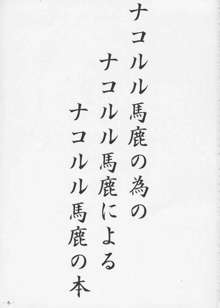 ナコルル馬鹿の為の
ナコルル馬鹿による
ナコルル馬鹿の本